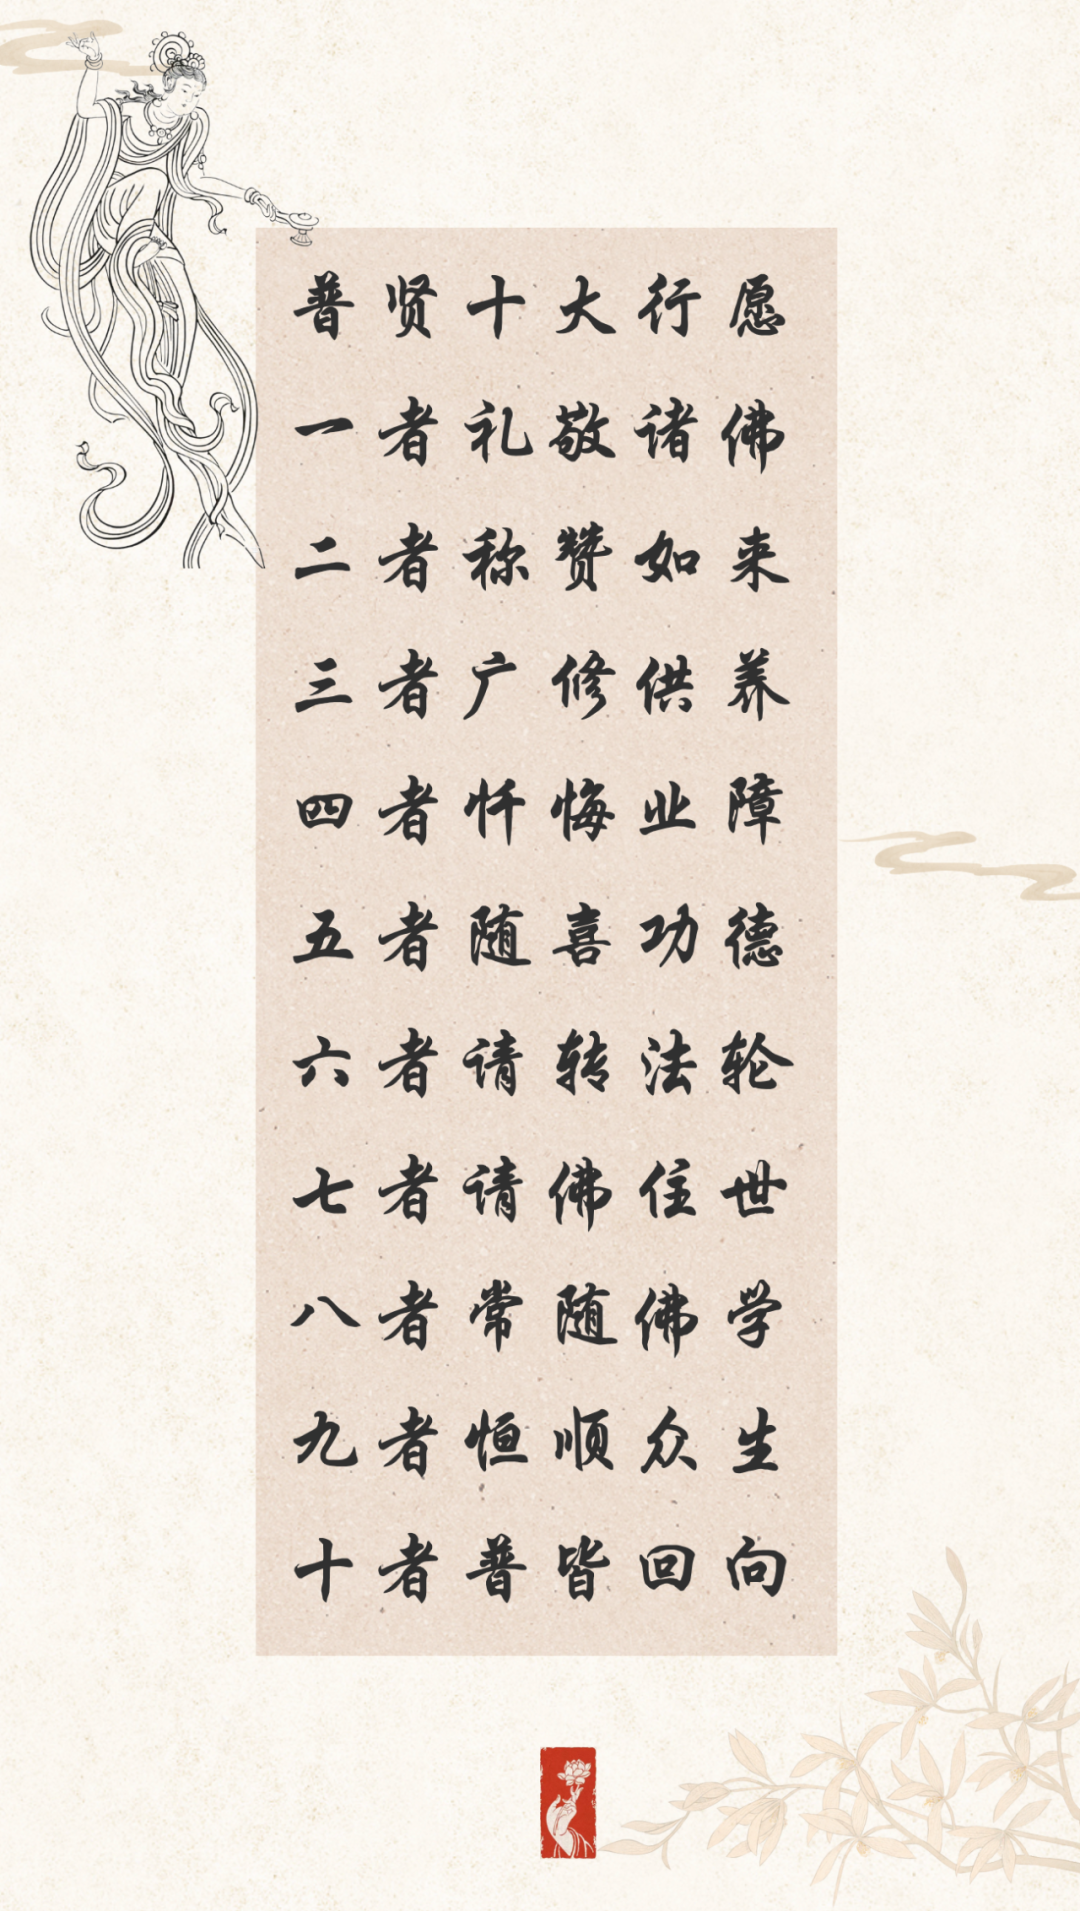 普贤十大行愿
一者礼敬诸佛
二者称赞如来
三者广修供养
四者忏悔业障
五者随喜功德
六者请转法轮
七者请佛住世
八者常随佛学
九者恒顺众生
十者普皆回向